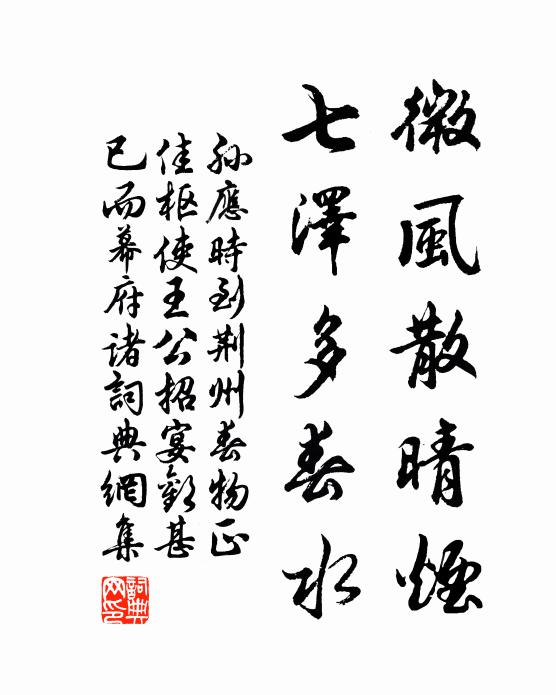 微風散晴煙
七澤多春水
孫應時到荆州春物正
佳枢使王公招宴歡甚
已而幕府諸詞典網集
詞典網印